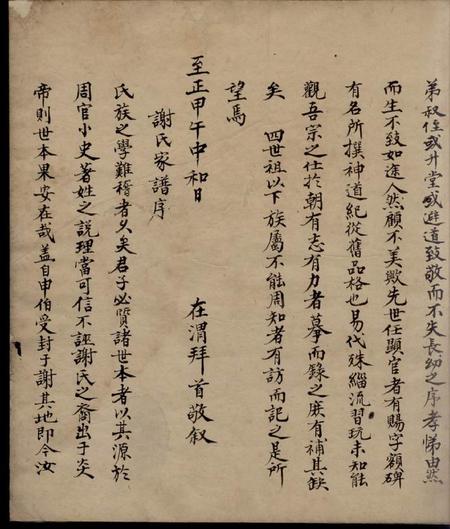 弟叔侄或升堂或避道致敬而不失長幼之序孝悌由然
而生不致如途人然顧不美歟先世任顯官者有賜字額碑
有名所撰神道紀從舊品格也易代殊緇流習玩未知能
觀吾宗之仕於朝有志有力者摹而錄之庶有補其缺
矣　四世祖以下族屬不能周知者有訪而記之是所
望焉
至正甲午中和日　在渭拜首敬叙
謝氏家譜序
氏族之學難稽者久矣君子必質諸世本者以其源於
周官小史著姓之說理當可信不誣謝氏之裔出于炎
帝則世本果安在哉盖自申伯受封于謝其地即今汝